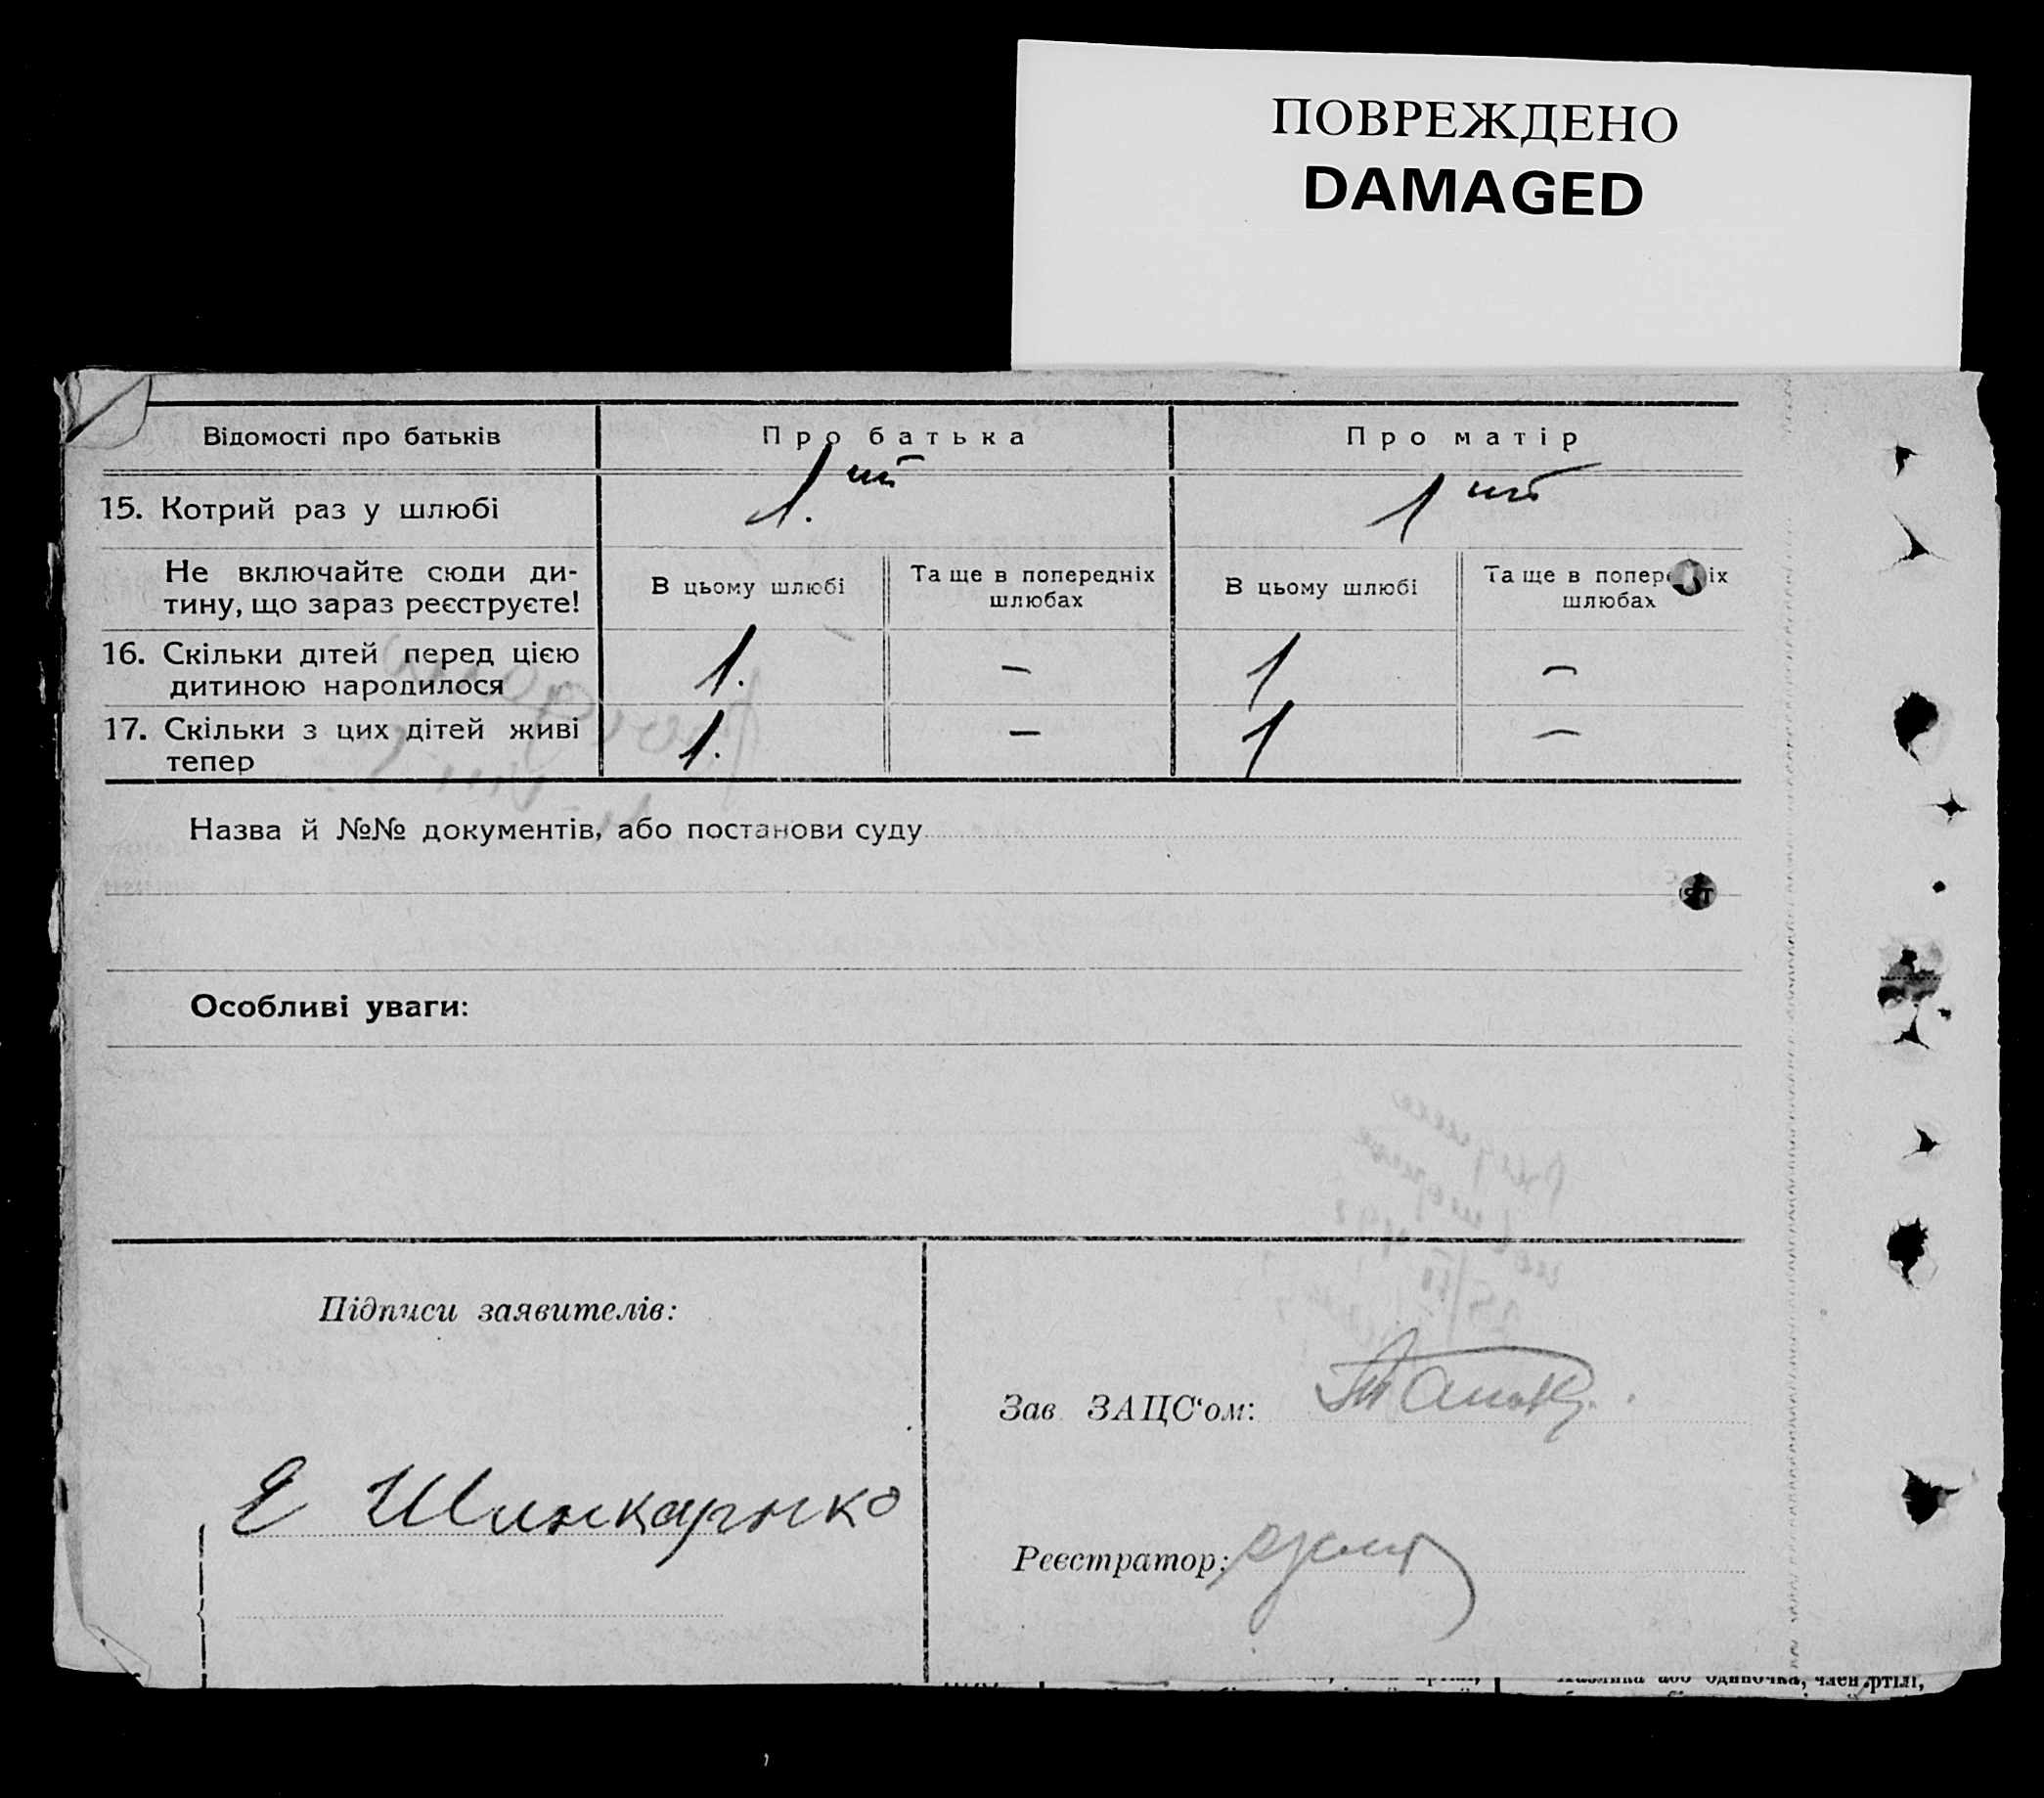 ПОВРЕЖДЕНО
DAMAGED
Відомості про батьків
Про батька
Про матір
15. Котрий раз у шлюбі
1.ий
1ий
Не включайте сюди ди-
тину, що зараз реєструєте!
В цьому шлюбі
Та ще в попередніх
шлюбах
В цьому шлюбі
Та ще в попер іх
шлюбах
16. Скільки дітей перед цією
дитиною народилося
1.
—
1
—
17. Скільки з цих дітей живі
тепер
1.
—
1
—
Назва й №№ документів, або постанови суду
Особливі уваги:
Підписи заявителів:
Зав ЗАЦС‘ом:
Е
Реєстратор:
або одиночка, член ртілі,